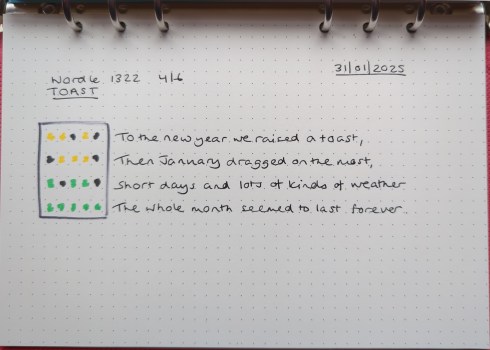 31/01/2025
Wordle 1322 4/6
TOAST
To the new year we raised a toast,
Then January dragged on the most,
Short days and lots of kinds of weather
The whole month seemed to last forever.